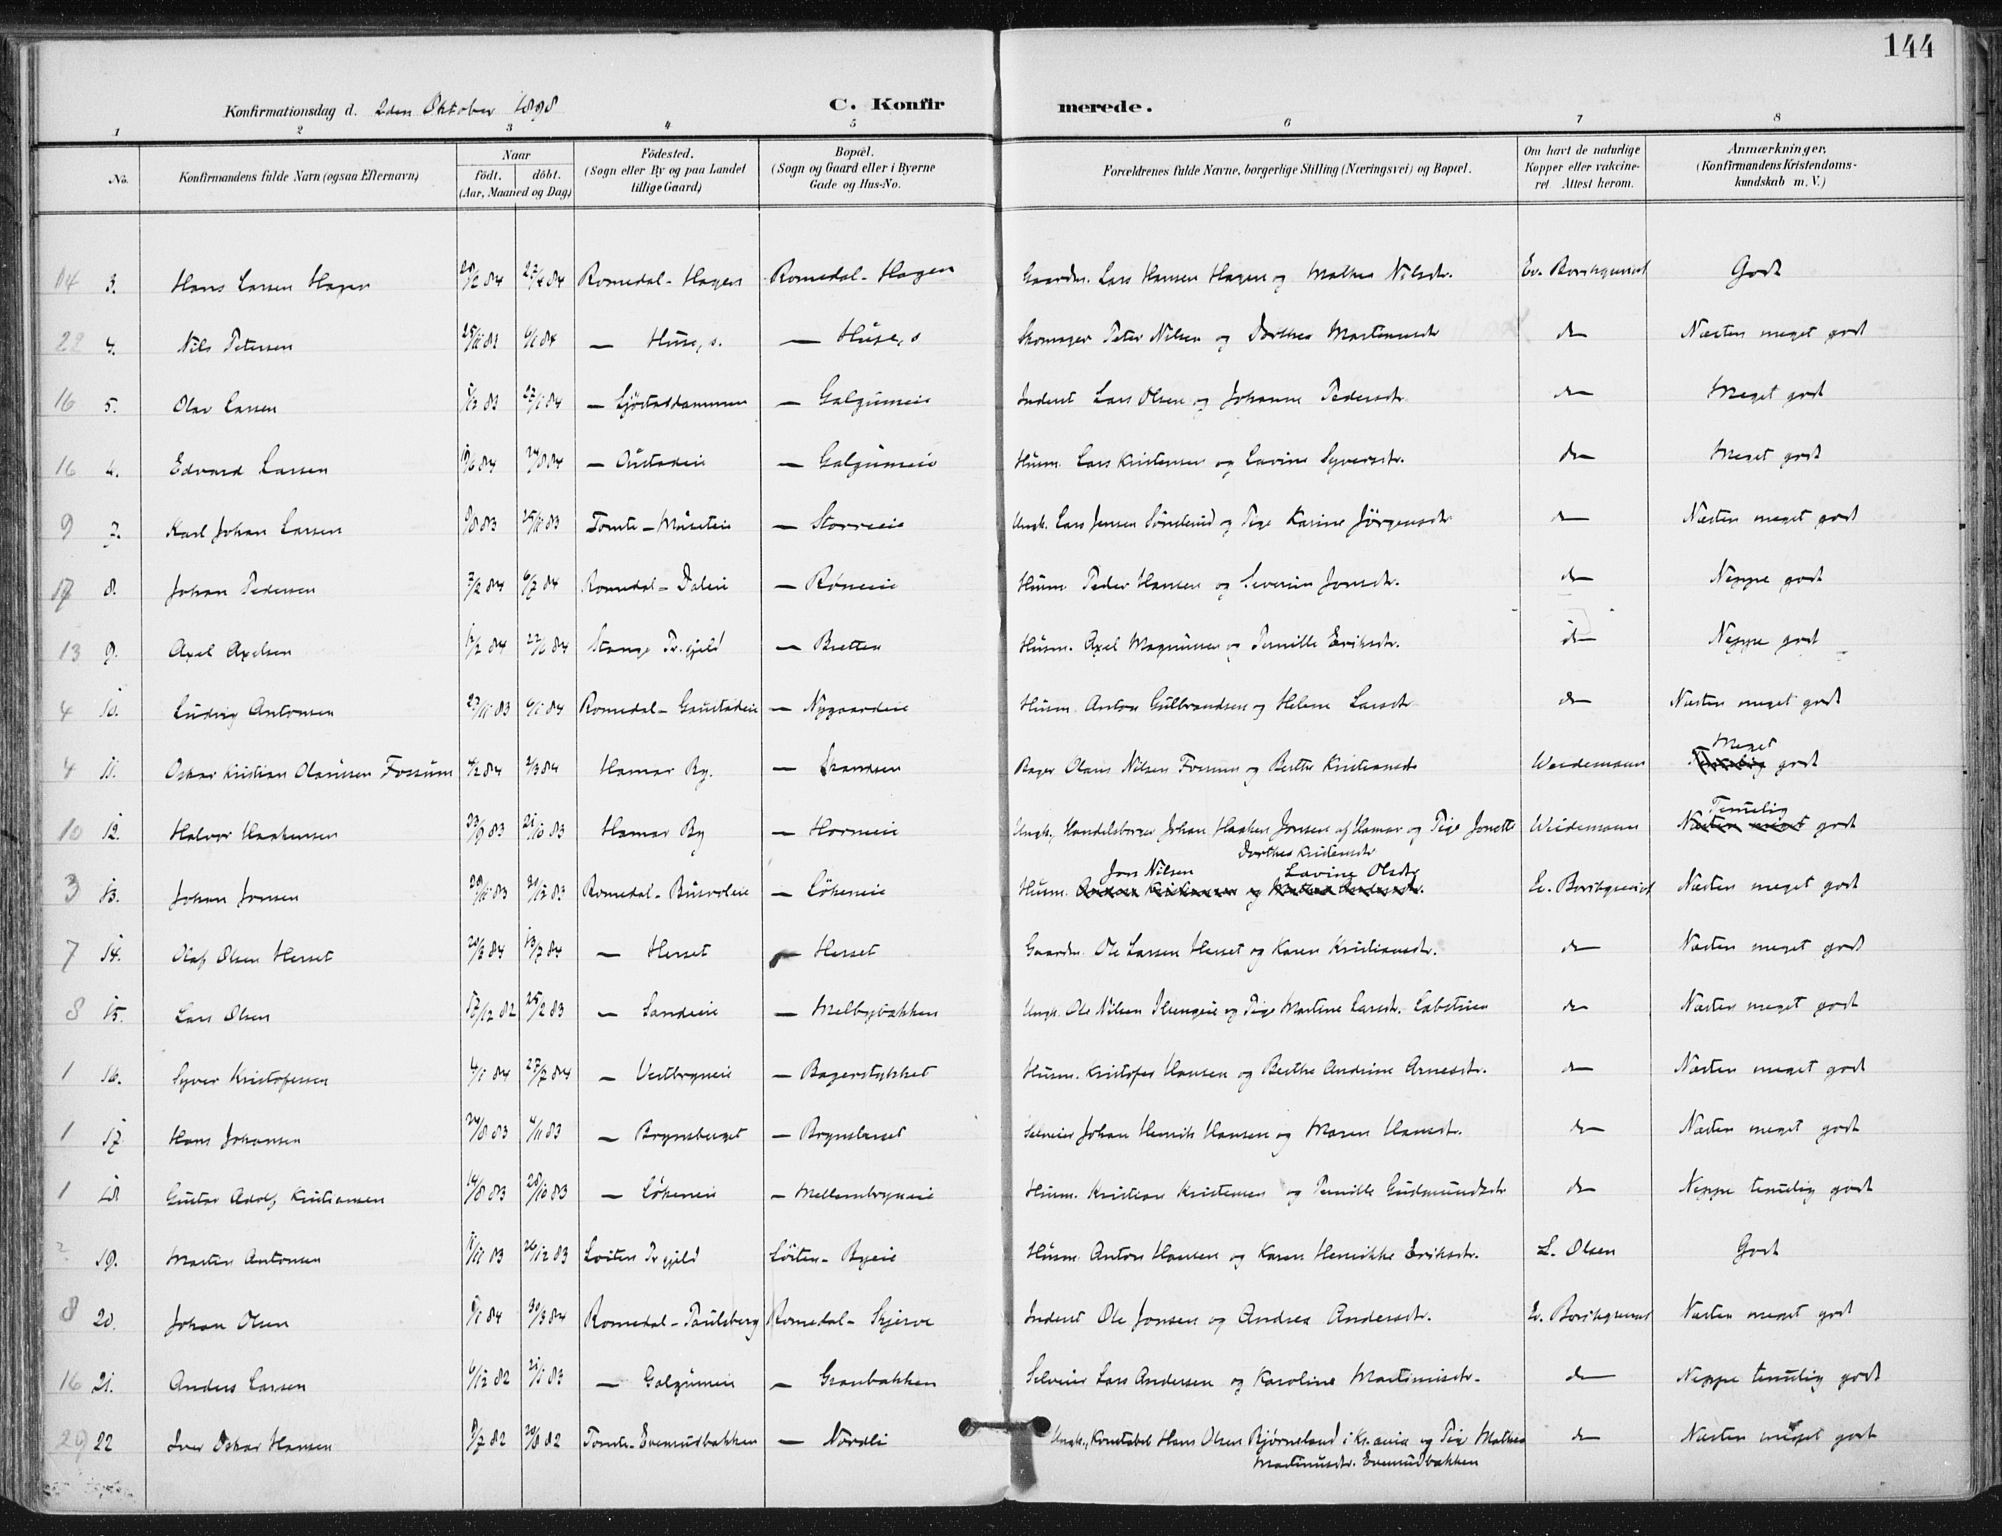 144
Konfirmationsdag d. 2den Oktober 1898 C. Konfirmerede.
1 2 3 4 5 6 7 8
No. Konfirmandens fulde Navn (ogsaa Efternavn) Naar født. døbt. (Aar, Maaned og Dag) Fødested. (Sogn eller By og paa Landet tillige Gaard) Bopæl. (Sogn og Gaard eller i Byerne Gade og Hus-No. Forældrenes fulde Navne, borgerlige Stilling (Næringsvei) og Bopæl. Om havt de naturlige Kopper eller vakcineret. Attest herom. Anmærkninger. (Konfirmandens Kristendomskundskab m. V.)
14 3. Hans Larsen Hagen 84 84 Romedal - Hagen Romedal - Hagen Gaardm. Lars Hansen Hagen og Mathea Nilsdr. Godt
22 4. Nils Petersen 25/11 83 6/1 84 — Huse, s. — Huse, s Skomager Peter Nilsen og Dorthea Martinusdr do Næsten meget godt
16 5. Olav Larsen 83 27/1 84 — Galgumeie Inderst Lars Olsen og Johanne Pedersdr. do Meget godt
16 Edvard Larsen 84 24/8 84 — Galgumeie Husm. Lars Kristensen og Lavine Syversdr. do Meget godt
9 7. Karl Johan Larsen 9/8 83 25/11 83 Tomte - — Storreeie Ungk. Lars Jensen og Pige Karine Jörgensdr do Næsten meget godt
17 8. Johan Pedersen 7/2 84 6/7 84 Romedal - Daleie — Röneeie Husm Peder Hansen og Severine Jonsdr. do Neppe godt
13 9. Axel Axelsen 12/2 84 84 Stange Pr.gjeld — Bretten Husm. Axel Magnussen og Pernille Eriksdr. do Neppe godt
4 10. Ludvig Antonsen 27/11 83 6/1 84 Romedal - Gaustadeie — Nygaardeie Husm. Anton Gulbrandsen og Helene Larsdr do Næsten meget godt
4 11. Oskar Kristian Olaussen Fossum 4/2 84 2/3 84 Hamar By. — Bager Olaus Nilsen Fossum og Berthe Kristiansdr Weidemann Meget godt
10 12. Halvor Haakensen 23/9 83 21/10 83 Hamar By — Horneie Ungk., Handelsborger Johan Haaken Jonsen af Hamar og Pige Jonette Dorthea Kristensdr Weidemann Temelig Næsten meget godt
3 13. Johan Jonsen 29/11 83 83 Romedal - Busvoleie — Lökeneie Husm. Jon Nilsen og Lavine Olsdr Næsten meget godt
7 14. Olaf Olsen Herset 20/3 84 13/7 84 — Herset — Herset Gaardm. Ole Larsen Herset og Karen Kristiansdr. do Næsten meget godt
8 15. Lars Olsen 12 82 25/2 83 — Sandeie — Melbybakken Ungk. Ole Nilsen og Pige Martine Larsdr. do Næsten meget godt
1 16. Syver Kristofersen 6/1 84 27/7 84 — Vestbyneie — Bagerstykket Husm. Kristofer Hansen og Berthe Andrine Arnesdr. do Næsten meget godt
1 17. Hans Johansen 24/8 83 4/11 83 — Brynsberget — Brynsberget Selveier Johan Henrik Hansen og Maren Hansdr. do Næsten meget godt
1 18 Gustav Adolf Kristiansen 14/8 83 28/10 83 — Lökeneie — Mellembryneie Husm. Kristian Kristensen og Pernille Gudmundsdr do Neppe temelig godt
2 19. Martin Antonsen 11/11 83 26/12 83 Löiten Pr.gjeld Löiten - Byeie Husm. Anton Hansen og Karen Henrikke Eriksdr. L. Olsen Godt
8 20. Johan Olsen 9/1 84 30/3 84 Romedal - Paulsberg Romedal - Skjerve Inderst Ole Jonsen og Andrea Andersdr. Næsten meget godt
16 21. Anders Larsen 6/12 82 21/1 83 — Galgumeie — Granbakken Selveier Lars Andersen og Karoline Martinusdr. do Neppe temelig godt
29 22 Iver Oskar Hansen 9/7 82 20/8 82 Tomte - Evensudbakken — Nordli Ungk., Konstabel Hans Olsen Bjørneland i Kr.ania og Pige Mathea Martinusdr. Evensudbakken do Næsten meget godt